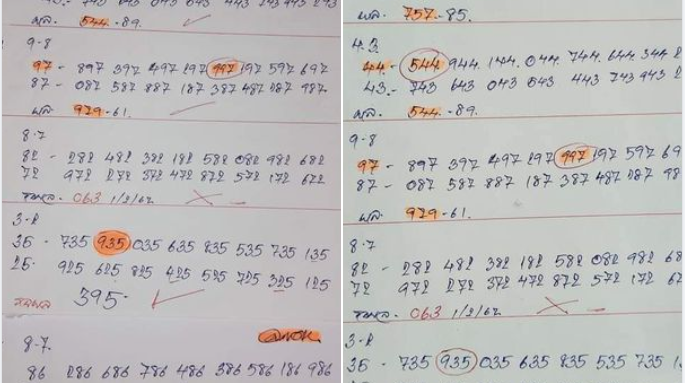 43.- 743 643 043 543 443 243 943 293
ผล. 544-89.
9-8
97 - 897 397 497 297 997 197 597 697
87 - 087 587 887 187 387 487 287 987.
ผล. 979-61.
8.7
82 - 282 482 382 182 582 082 982 682
72 972 272 372 472 872 572 172 672
063 1/2/62
3-2
35 - 735 935 035 635 835 535 735 135
25. 925 625 825 425 525 725 325 125
395.
8-7.
86 286 686 786 486 386 586 186 986
ผล. 757-85.
4.3
44.- 544 944. 144. 044. 744. 644. 344 2
43.- 743 643 043 543 443 743 943 2
ผล. 544.-89.
9-8
97 - 897 397 497 297 997 197 597 69
87 - 087 587 887 187 387 487 287 98
ผล. 979-61.
8.7
82 - 282 482 382 182 582 082 982 68
72 972 272 372 472 872 572 172 62
063 1/2/62
3-2
35 - 735 935 035 635 835 535 735 1